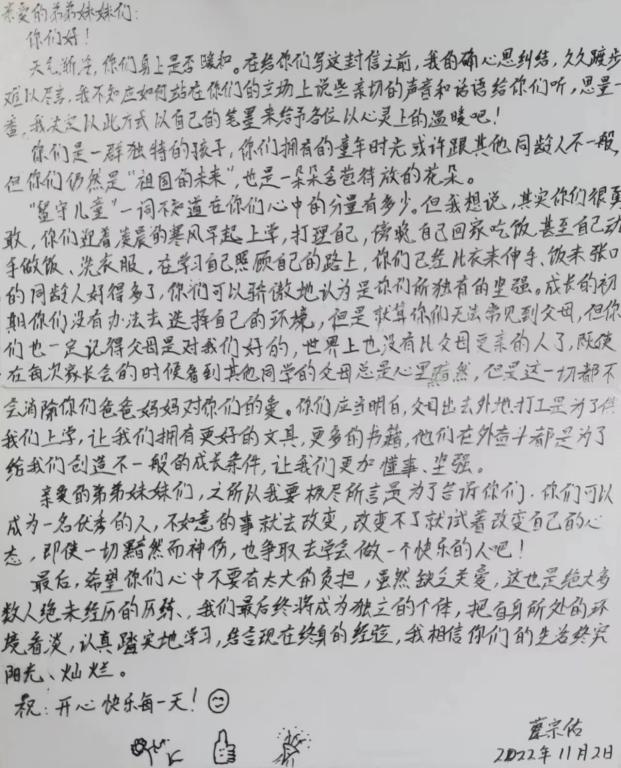 亲爱的弟弟妹妹们：
你们好！
天气渐冷，你们身上是否暖和。在给你们写这封信之前，我的确心思纠结，久久踱步
难以尽言，我不知应如何站在你们的立场上说些亲切的声音和话语给你们听，思量一
番，我决定以此方式以自己的笔墨来给予各位以心灵上的温暖吧！
你们是一群独特的孩子，你们拥有的童年时光或许跟其他同龄人不一般，
但你们仍然是“祖国的未来”，也是一朵朵含苞待放的花朵。
“留守儿童”一词不知道在你们心中的分量有多少。但我想说，其实你们很勇
敢，你们迎着凌晨的寒风早起上学，打理自己，傍晚自己回家吃饭甚至自己动
手做饭、洗衣服，在学习自己照顾自己的路上，你们已经比衣来伸手、饭来张口
的同龄人好得多了，你们可以骄傲地认为是你们所独有的坚强。成长的初
期你们没有办法去选择自己的环境，但是就算你们无法常见到父母，但你
们也一定记得父母是对我们好的，世界上也没有比父母更亲的人了，既使
在每次家长会的时候看到其他同学的父母总是心里黯然，但是这一切都不
会消除你们爸爸妈妈对你们的爱。你们应当明白，父母出去外地打工是为了供
我们上学，让我们拥有更好的文具，更多的书籍，他们在外奋斗都是为了
给我们创造不一般的成长条件，让我们更加懂事、坚强。
亲爱的弟弟妹妹们，之所以我要极尽所言是为了告诉你们，你们可以
成为一名优秀的人，不如意的事就去改变，改变不了就试着改变自己的心
态，即使一切黯然而神伤，也争取去学会做一个快乐的人吧！
最后，希望你们心中不要有太大的负担，虽然缺乏关爱，这也是绝大多
数人绝未经历的历练、我们最后终将成为独立的个体，把自身所处的环
境看淡，认真踏实地学习，结言现在终身的经验，我相信你们的生活终究
阳光、灿烂。
祝：开心快乐每一天！
宗佑
2022年11月2日